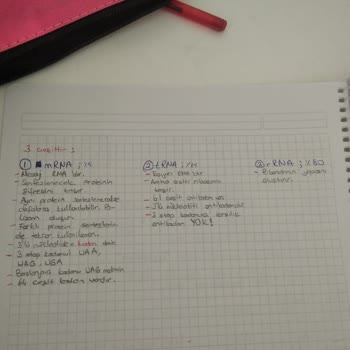 3 çeşittir ;
① mRNA ; %5
- Mesajcı RNA'dır.
- Sentezlenecek proteinin
şifresini taşır.
- Aynı protein sentezlenecekse
defalarca kullanılabilir.
- Farklı protein
de tekrar kullanılamaz.
- 3'lü nükleotide kodon denir.
- 3 stop kodonu UAA,
UAG, UGA
- Başlangıç kodonu AUG
- 64 çeşit kodon vardır.
② tRNA ; %15
- Taşıyıcı RNA'dır.
- Amino asitleri ribozoma
taşır.
- 61 çeşit antikodon var.
- 3'lü nükleotit antikodondur.
- 3 stop kodonuna karşılık
antikodon YOK!
③ rRNA ; %80
- Ribozomun yapısını
oluşturur.